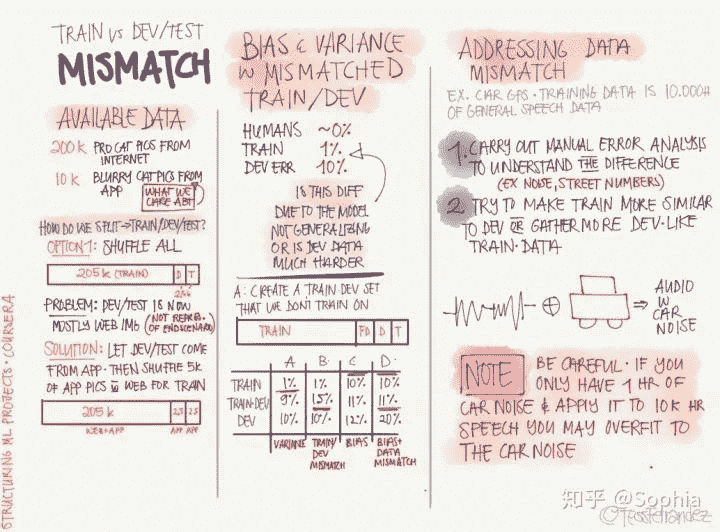 TRAIN vs DEV/TEST
MISMATCH
AVAILABLE DATA
200k PRO CAT PICS FROM
INTERNET
10k BLURRY CAT PICS FROM
APP
WHAT WE
CARE ABT
HOW DO WE SPLIT → TRAIN/DEV/TEST?
OPTION 1: SHUFFLE ALL
205k (TRAIN) D T
PROBLEM: DEV/TEST IS NOW
MOSTLY WEB IMG (NOT REPR.
OF END SCENARIO)
SOLUTION: LET DEV/TEST COME
FROM APP. THEN SHUFFLE 5K
OF APP PICS W WEB FOR TRAIN
205k 2.5 2.5
WEB+APP APP APP
BIAS & VARIANCE
W MISMATCHED
TRAIN/DEV
HUMANS ~0%
TRAIN 1%
DEV ERR 10%
IS THIS DIFF
DUE TO THE MODEL
NOT GENERALIZING
OR IS DEV DATA
MUCH HARDER
A: CREATE A TRAIN-DEV SET
THAT WE DON'T TRAIN ON
TRAIN D T
A B C D
TRAIN 1% 1% 10% 10%
TRAIN-DEV 9% 1.5% 11% 11%
DEV 10% 10% 12% 20%
VARIANCE TRAIN/DEV MISMATCH BIAS BIAS+DATA MISMATCH
ADDRESSING DATA
MISMATCH
EX. CAR GPS · TRAINING DATA IS 10.000H
OF GENERAL SPEECH DATA
1. CARRY OUT MANUAL ERROR ANALYSIS
TO UNDERSTAND THE DIFFERENCE
(EX NOISE, STREET NUMBERS)
2 TRY TO MAKE TRAIN MORE SIMILAR
TO DEV OR GATHER MORE DEV-LIKE
TRAIN-DATA
⊕ ⇒ AUDIO
W CAR
NOISE
NOTE BE CAREFUL · IF YOU
ONLY HAVE 1 HR OF
CAR NOISE & APPLY IT TO 10K HR
SPEECH YOU MAY OVERFIT TO
THE CAR NOISE
STRUCTURING ML PROJECTS · COURSERA
知乎 @Sophia
@TessFerrandez